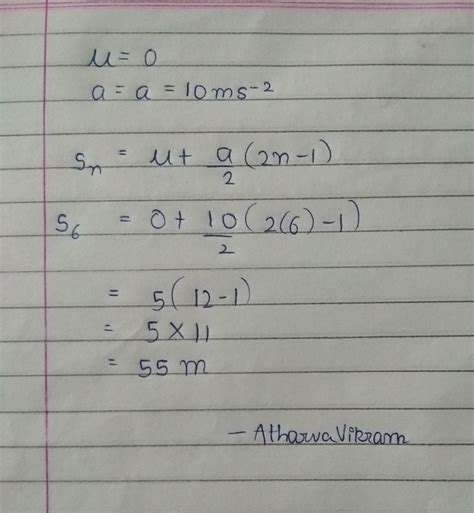 u = 0
a = a = 10ms-2
Sn = u + a/2 (2n-1)
S6 = 0 + 10/2 (2(6)-1)
= 5(12-1)
= 5 × 11
= 55 m
- AtharvaVikram